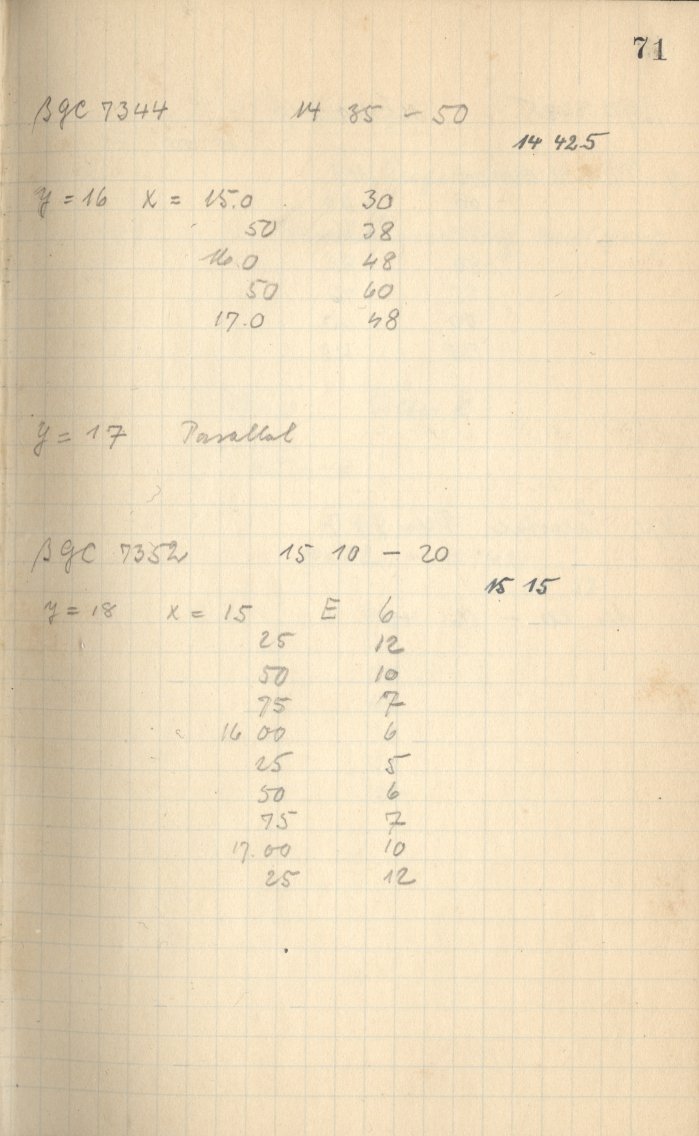 71
βGC 7344 14 35 – 50
14 425
y = 16 x = 15.0 30
50 38
16 0 48
50 60
17.0 48
y = 17 Parallel
βGC 7352 15 10 – 20
15 15
y = 18 x = 15 E 6
25 12
50 10
75 7
16 00 6
25 5
50 6
75 7
17.00 10
25 12